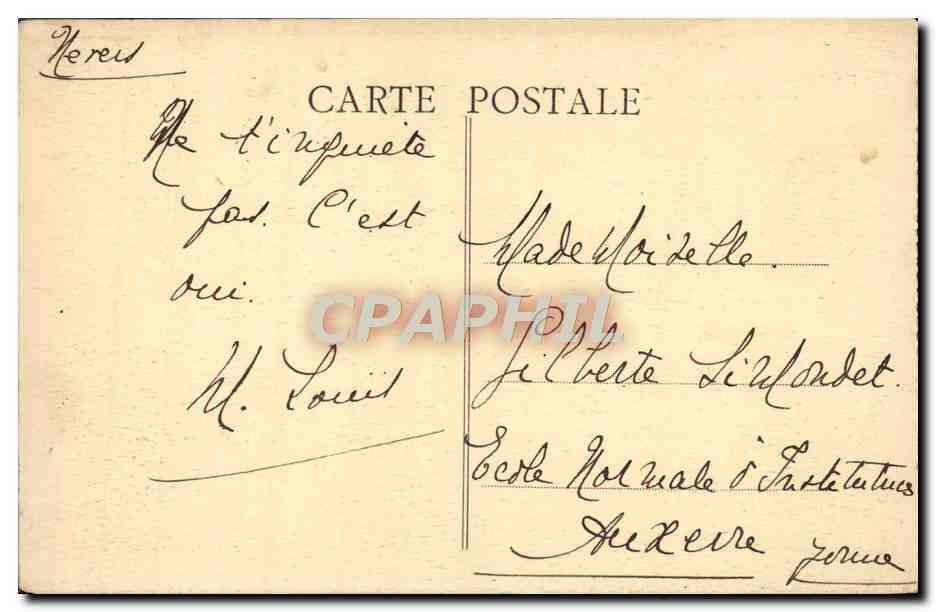 Nevers
CARTE POSTALE
Ne t'inquiète
pas. C'est
oui.
M. Louis
MadeMoiselle.
Gilberte SiMondet.
Ecole Normale d'Institutrices
Auxerre Yonne
CPAPHIL